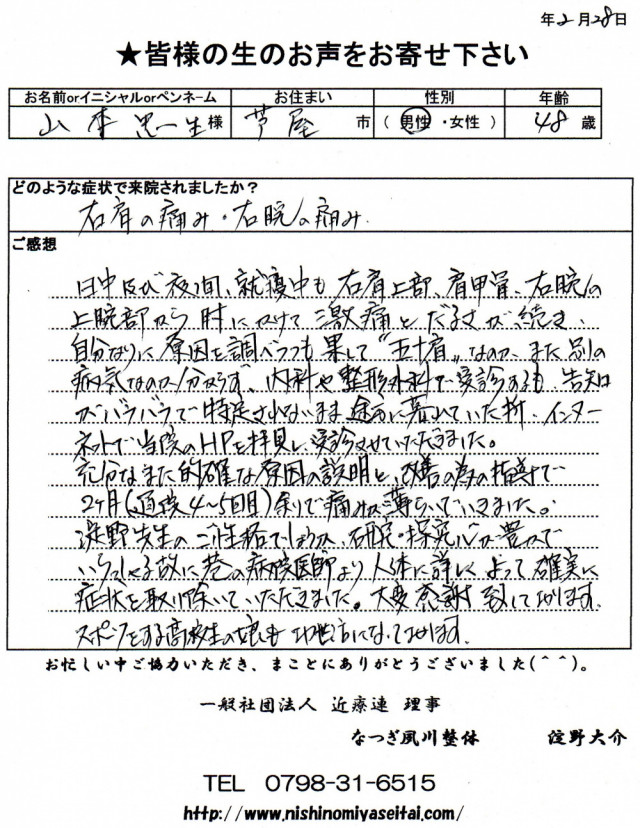 年2月28日
★皆様の生のお声をお寄せ下さい
お名前orイニシャルorペンネーム お住まい 性別 年齢
山本忠生様 芦屋市 (男性・女性) 48歳
どのような症状で来院されましたか?
右肩の痛み・右腕の痛み
ご感想
日中及び夜間、就寝中も右肩上部、肩甲骨、右腕の
上腕部から肘にかけて激痛とだるさが続き、
自分なりに原因を調べつつも果して"五十肩"なのか、また別の
病気なのか分からず、内科や整形外科で受診するも告知
がバラバラで特定されないまま途方に暮れていた折、インター
ネットで当院のHPを拝見し、受診させていただきました。
充分なまた的確な原因の説明と、改善の為の指導で
2ヶ月(通院4〜5回目)余りで痛みが薄らいでいきました。
淀野先生のご性格でしょうか、研究・探究心が豊かで
いらっしゃる故に巷の病院医師より人体に詳しく、よって確実に
症状を取り除いていただきました。大変感謝致しております。
スポーツをする高校生の娘もお世話になっております。
お忙しい中ご協力いただき、まことにありがとうございました(^^)。
一般社団法人 近療連 理事
なつぎ夙川整体 淀野大介
TEL 0798-31-6515
http://www.nishinomiyaseitai.com/